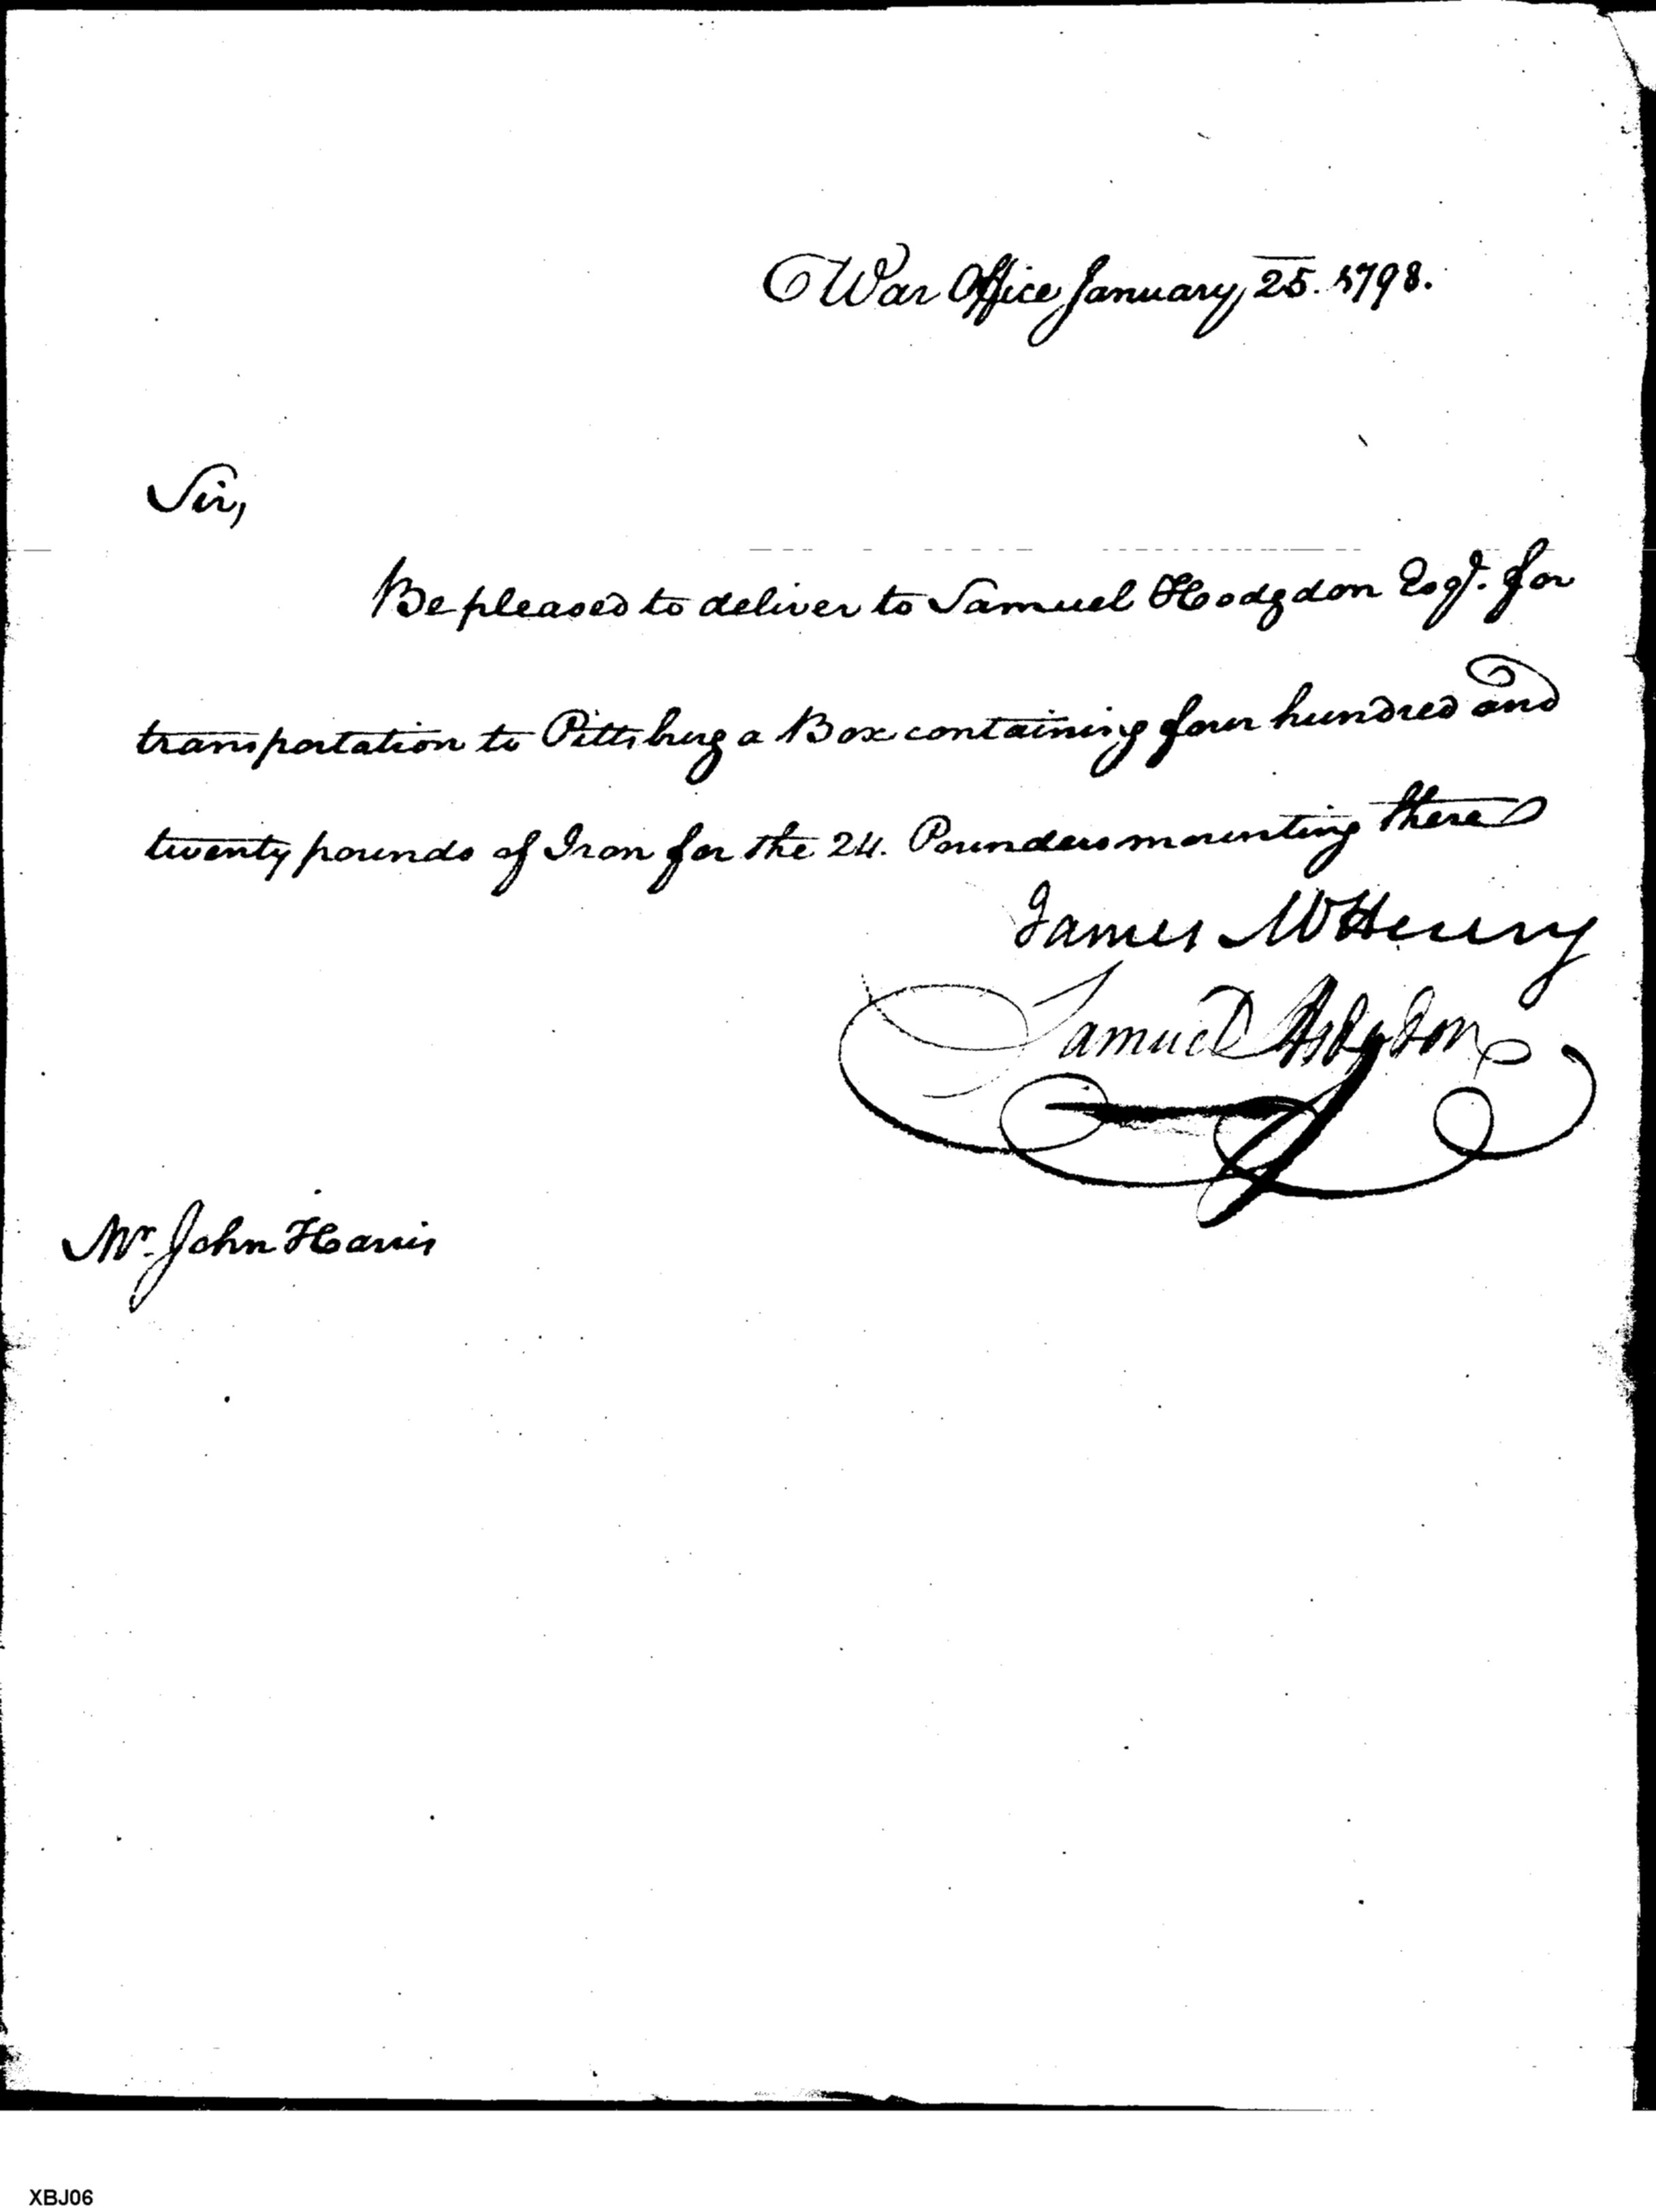 War Office January 25. 1798.
Sir,
Be pleased to deliver to Samuel Hodgdon Esqr. for
transportation to Pittsburg a Box containing four hundred and
twenty pounds of Iron for the 24. Pounders mounting there
James McHenry
Samuel Hodgdon
Mr. John Harris
XBJ06